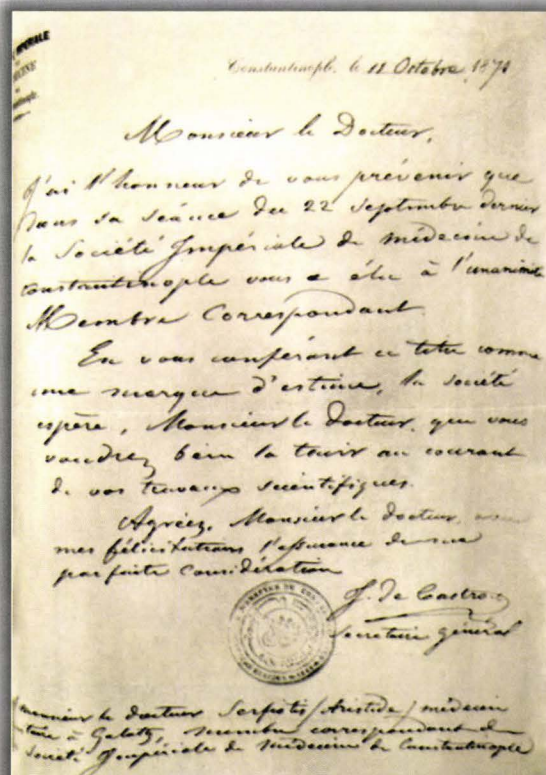 IMPERIALE
Constantinople, le 11 Octobre 1871
Monsieur le Docteur,
J'ai l'honneur de vous prévenir que
dans sa séance du 22 Septembre dernier
la Société Impériale de médecine de
Constantinople vous a élu à l'unanimité
Membre Correspondant.
En vous conférant ce titre comme
une marque d'estime, la société
espère, Monsieur le docteur, que vous
voudrez bien la tenir au courant
de vos travaux scientifiques.
Agréez, Monsieur le docteur, avec
mes félicitations l'assurance de ma
parfaite considération
J. de Castro
Secrétaire général
monsieur le docteur Serpotis (Aristide) médecin
à Galatz, membre correspondant de
Société Impériale de médecine de Constantinople